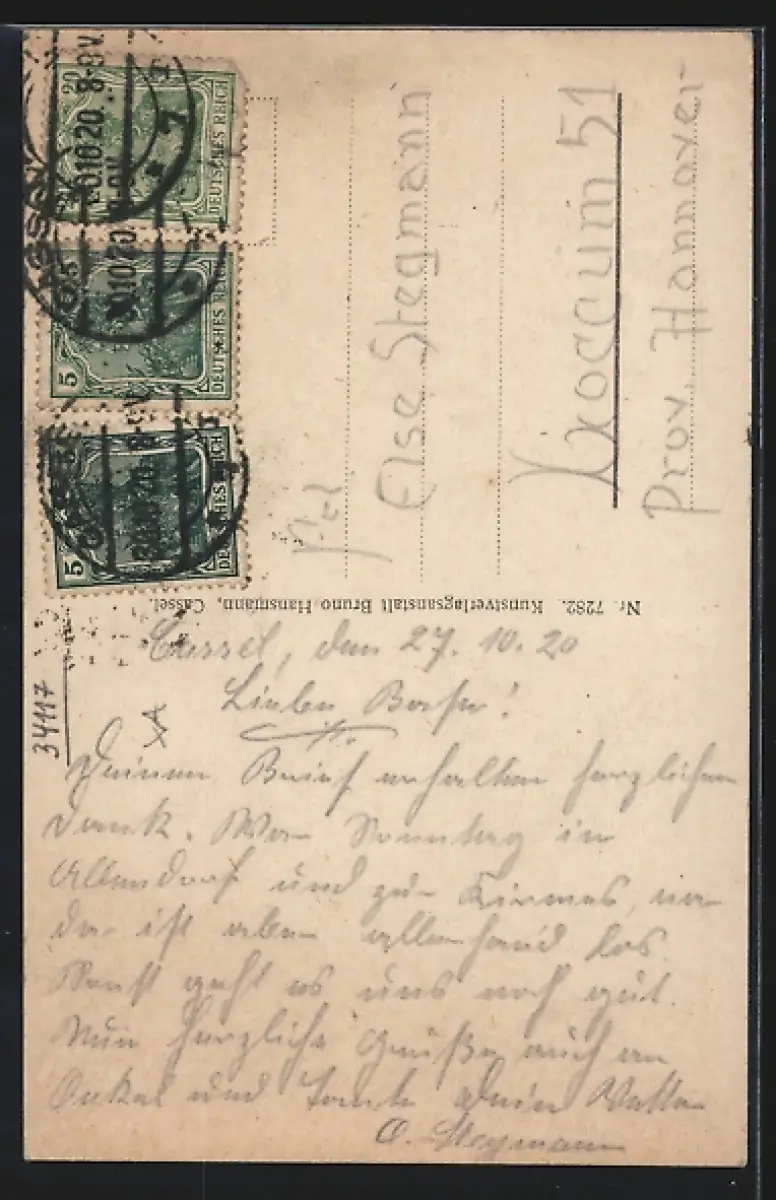 Cassel, den 27. 10. 20
Liebe Base!
Deinen Brief erhalten herzlichen
Dank. War Sonntag in
Allendorf und zur Kirmes, na
da ist aber allerhand los.
Sonst geht es uns noch gut.
Nun herzliche Grüße auch an
Onkel und Tante Dein Vetter
O. Stegmann
Frl.
Else Stegmann
Loccum 51
Prov. Hannover
Nr. 7282. Kunstverlagsanstalt Bruno Hansmann, Cassel.
34117
XA
DEUTSCHES REICH
5
DEUTSCHES REICH
5
DEUTSCHES REICH
CASSEL
10.20. 8-9V.
* 7